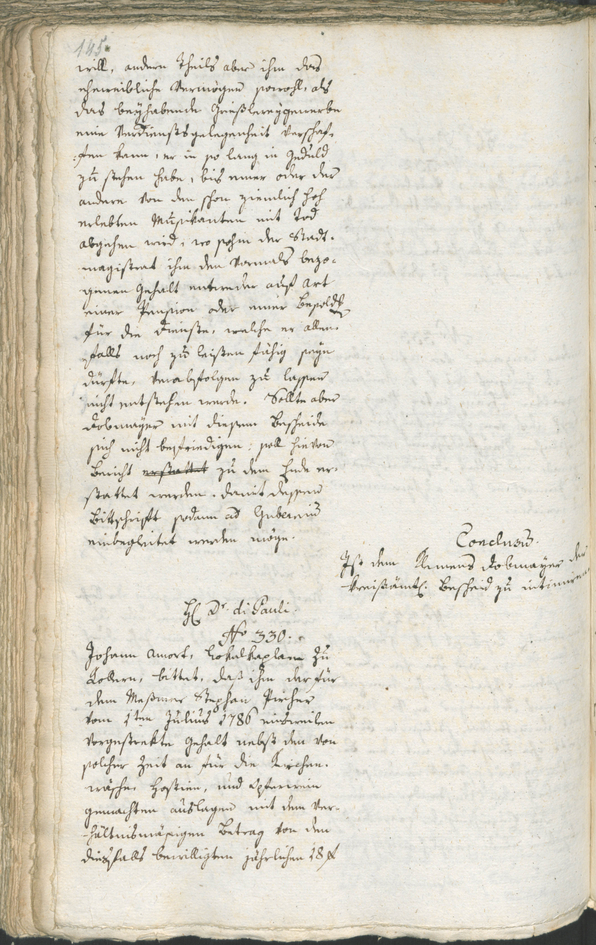 145.
will, andern Theils aber ihm das
eheweibliche Vermögen sowohl, als
das beyhabende Greißlereygewerbe
eine Verdienstsgelegenheit verschaf-
fen kann, er in so lang in Geduld
zu stehen habe, bis einer oder der
andere von den schon ziemlich hoch
erlebten Musikanten mit Tod
abgehen wird, wo sohin der Stadt-
magistrat ihm den vormals bezo-
genen Gehalt entweder auf Art
einer Pension oder einer Besold
für die Dienste, welche er allen-
falls noch zu leisten fähig seyn
dürfte, verabfolgen zu lassen
nicht entstehen werde. Sollte aber
Dobmayer mit diesem Bescheide
sich nicht befriedigen; soll hievon
Bericht erstattet zu dem Ende er-
stattet werden, damit dessen
Bittschrift sodann ad Gubernium
einbegleitet werden möge.
Conclusum.
Ist dem Klemens Dobmayer der
kreisämtl. Bescheid zu intimiren
H. Dr. di Pauli
No 330.
Johann Amort, Lokalkaplan zu
Kollern, bittet, daß ihm der für
dem Meßmer Stephan Pircher
vom 1ten Julius 1786 einsweilen
vorgestrekte Gehalt nebst den von
solcher Zeit an für die Kirchen-
wäsche, Hostien, und Opferwein
gemachten Auslagen mit dem Ver-
hältnismäsigen Betrag von den
diesfalls bewilligten jährlichen 18 f